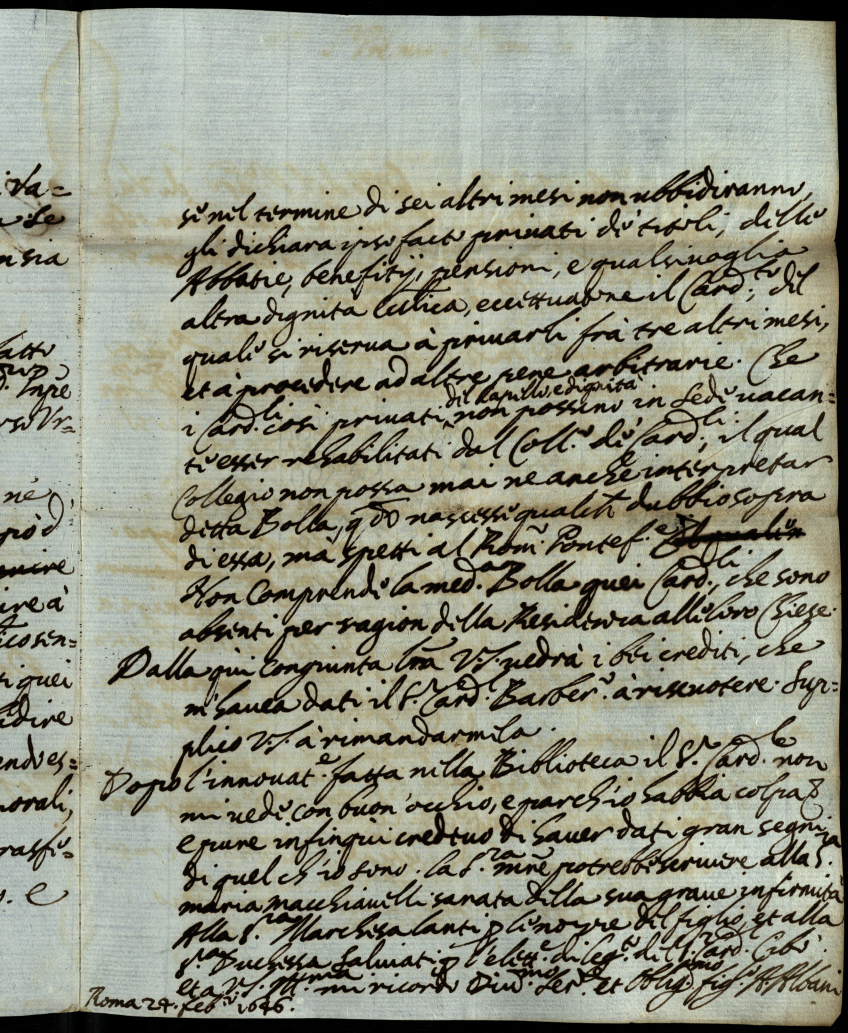 i Va=
se
nsia
fatto
Inpe
rse Vr=
né
più d'
ire à
ico sen=
ti quei
idire
endoes=
morali,
rasfe=
o. e
se nel termine di sei altri mesi non ubbidiranno,
gli dichiara ipso facto privati de' titoli, delle
Abbatie, benefitij, pensioni, e qualsivoglia
altra dignita Ecclica, eccettuatone il Card.to, del
quale si riserva à privarli frà tre altri mesi,
et à procedere ad altre pene arbitrarie. Che
i Card.li così privati, del Capello, e dignità non possino in Sede vacan=
te esser rehabilitati dal Coll.o de' Card.li, il qual
Collegio non possa mai ne anche interpretar
detta Bolla, qdo nascesse qualch dubbio sopra
di essa, mà spetti al Rom. Pontef.e
Non Comprende la med.a Bolla quei Card.li, che sono
absenti per ragion della Residenza alle loro Chiese.
Dalla qui congiunta lra V.S. vedrà i crediti, che
m'havea dati il S.r Card. Barber.o à riscuotere. Sup=
plico V.S. à rimandarmela.
Dopo l'innovat.e fatta nella Biblioteca il S.r Card.le non
mi vede con buon'occhio, e par ch'io habbia colpa
e pure infin qui credevo di haver dati gran segni
di quel ch'io sono. la S.ra mre potrebbe scrivere alla S.ra
maria macchiavelli sanata della sua grave infirmità
Alla S.ra Marchesa lanti p le nozze del figlio, et alla
S.ra Duchessa Salviati p l'elett.e di Leg.to del S.r Card. Cibò.
et à V.S. mi ricordo Div.mo Ser.e et oblig.mo fig.o A. Albani
Roma 24. feb.o 1646.